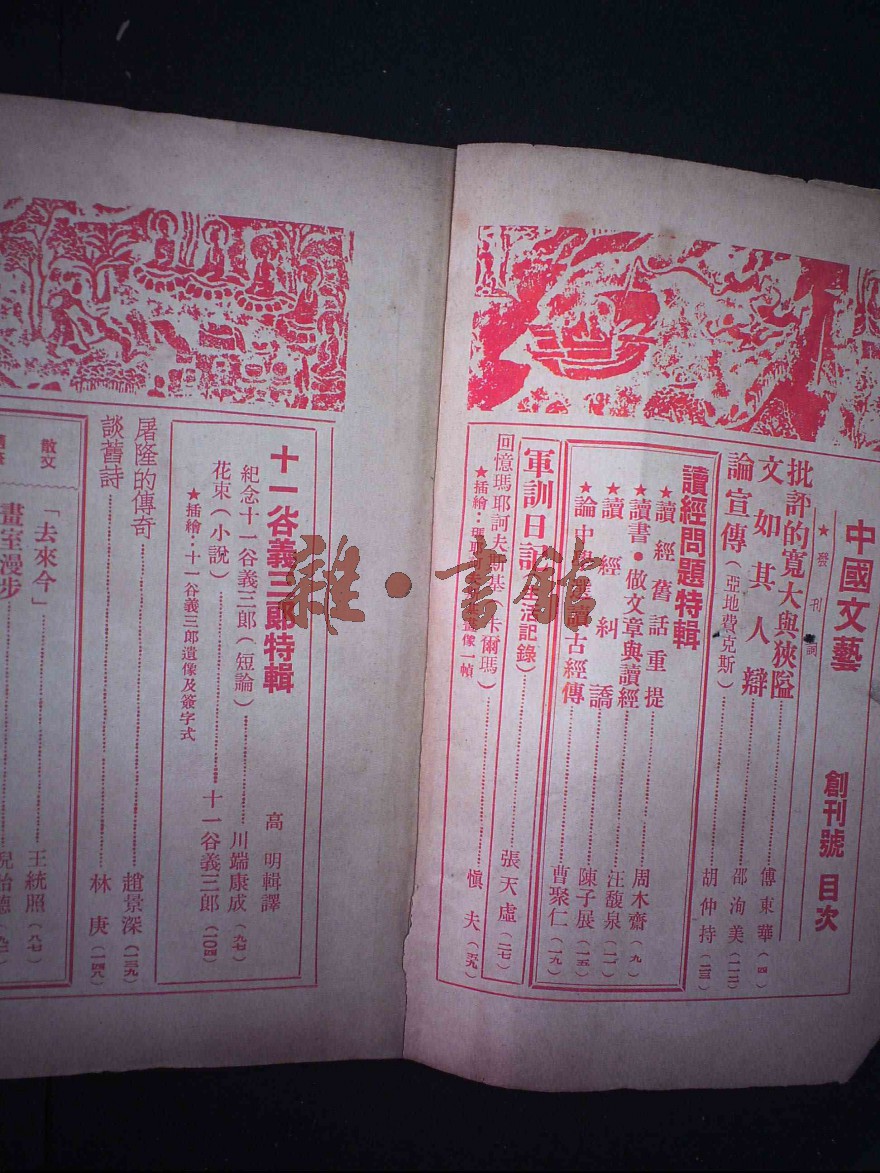 中國文藝
創刊號 目次
★發刊詞
批評的寬大與狹隘 傅東華（四）
文如其人辯 邵洵美
論宣傳（亞地費克斯） 胡仲持
讀經問題特輯
★讀經舊話重提 周木齋（九）
★讀書·做文章與讀經 汪馥泉（一一）
★讀經糾譑 陳子展（一五）
★論中 讀古經傳 曹聚仁（一九）
軍訓日記 生活記錄） 張天虛（二七）
回憶瑪耶訶夫斯基 卡爾瑪） 愼夫
★插繪：瑪耶 像一幀
十一谷義三郎特輯
高明輯譯
紀念十一谷義三郎（短論） 川端康成（九七）
花束（小說） 十一谷義三郎（一〇四）
★插繪：十一谷義三郎遺像及簽字式
屠隆的傳奇 趙景深（一三九）
談舊詩 林庚（一四八）
散文
「去來今」 王統照（八七）
畫室漫步 倪貽德
雜·書館